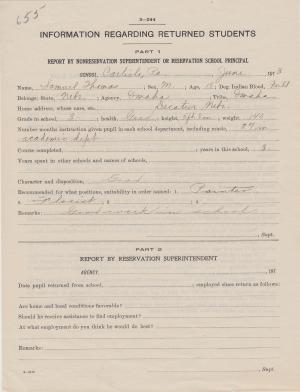 655
3-244
INFORMATION REGARDING RETURNED STUDENTS
PART 1
REPORT BY NONRESERVATION SUPERINTENDENT OR RESERVATION SCHOOL PRINCIPAL
SCHOOL, Carlisle, Pa. June 1913
Name, Samuel Thomas, Sex, M., Age, 18, Deg. Indian Blood, Full
Belongs: State, Nebr. Agency, Omaha Tribe, Omaha
Home address, wife care, etc., Decatur Nebr.
Grade in school, 3 health, Good height, 5ft. 8 in. weight, 140
Number months instruction given pupil in each school department, including outing, 27 mo
academic dept
Course completed, years in this school, 3
Years spent in other schools and names of schools,
Character and disposition, Good
Recommended for what positions, suitability in order named: 1. Painter
2. Florist 3. 4.
Remarks: Good work in school
, Supt.
PART 2
REPORT BY RESERVATION SUPERINTENDENT
AGENCY, 191
Date pupil returned from school, , employed since return as follows:
Are home and local conditions favorable?
Should he receive assistance to find employment?
At what employment do you think he would do best?
Remarks:
, Supt.